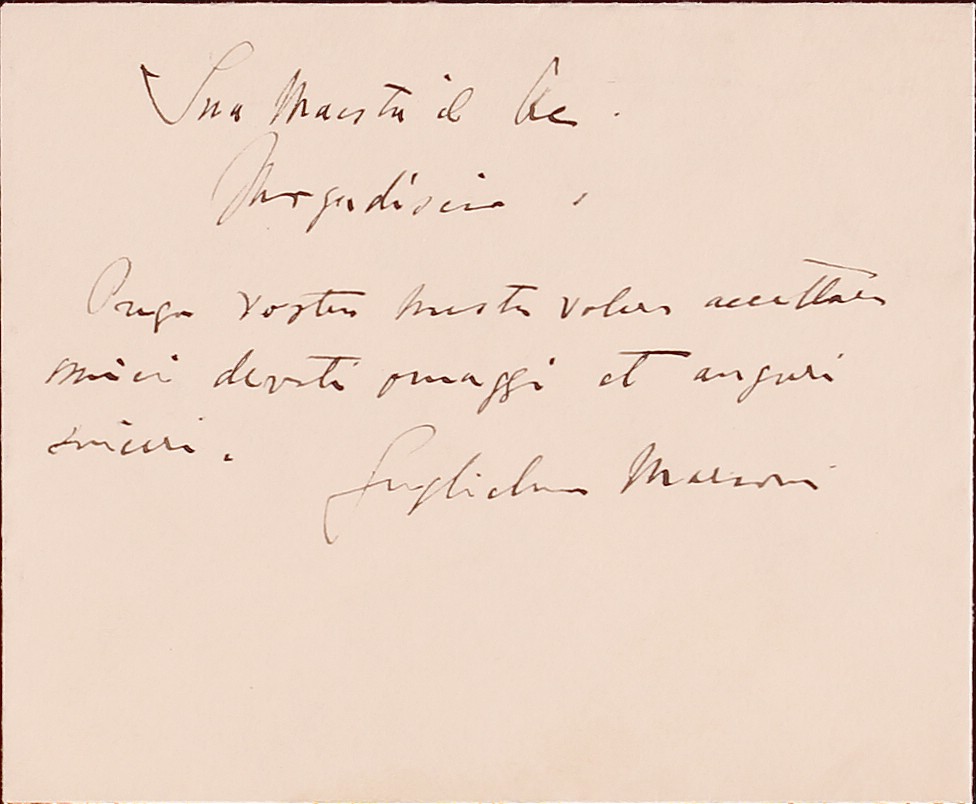 Sua Maestà il Re.
Mogadiscio,
Prego Vostra Maestà voler accettare
miei devoti omaggi et auguri
sinceri.
Guglielmo Marconi